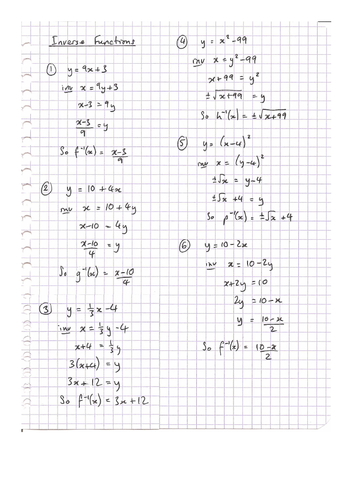 Inverse Functions
① y = 9x+3
inv x = 9y+3
x-3 = 9y
x-3/9 = y
So f⁻¹(x) = x-3/9
② y = 10+4x
inv x = 10+4y
x-10 = 4y
x-10/4 = y
So g⁻¹(x) = x-10/4
③ y = 1/3 x -4
inv x = 1/3 y -4
x+4 = 1/3 y
3(x+4) = y
3x+12 = y
So f⁻¹(x) = 3x+12
④ y = x²-99
inv x = y²-99
x+99 = y²
±√x+99 = y
So h⁻¹(x) = ±√x+99
⑤ y = (x-4)²
inv x = (y-4)²
±√x = y-4
±√x +4 = y
So p⁻¹(x) = ±√x +4
⑥ y = 10-2x
inv x = 10-2y
x+2y = 10
2y = 10-x
y = 10-x/2
So f⁻¹(x) = 10-x/2